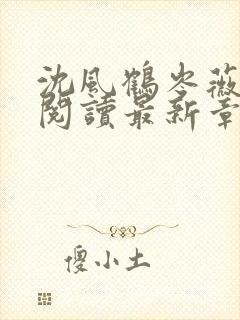 沈风鶴岑薇
閱讀最新章
傻小土